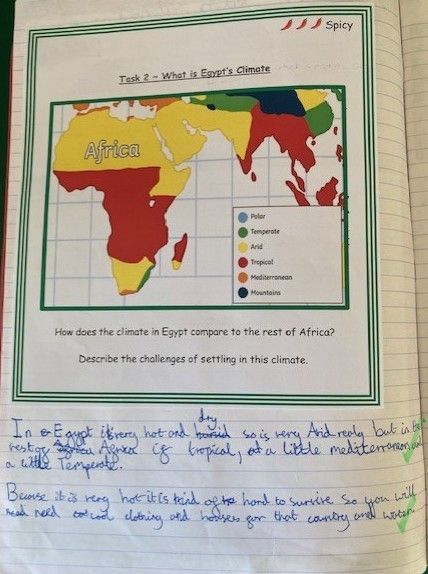 Spicy
Task 2 – What is Egypt's Climate
Africa
Polar
Temperate
Arid
Tropical
Mediterranean
Mountains
How does the climate in Egypt compare to the rest of Africa?
Describe the challenges of settling in this climate.
dry
In Egypt it is very hot and so is very Arid realy but in the
rest of Africa is tropical, a little mediterranean and
a little Temperate.
Becuse it is very hot it is kind of hard to survive so you will
need need cool clothing and houses for that country and water.